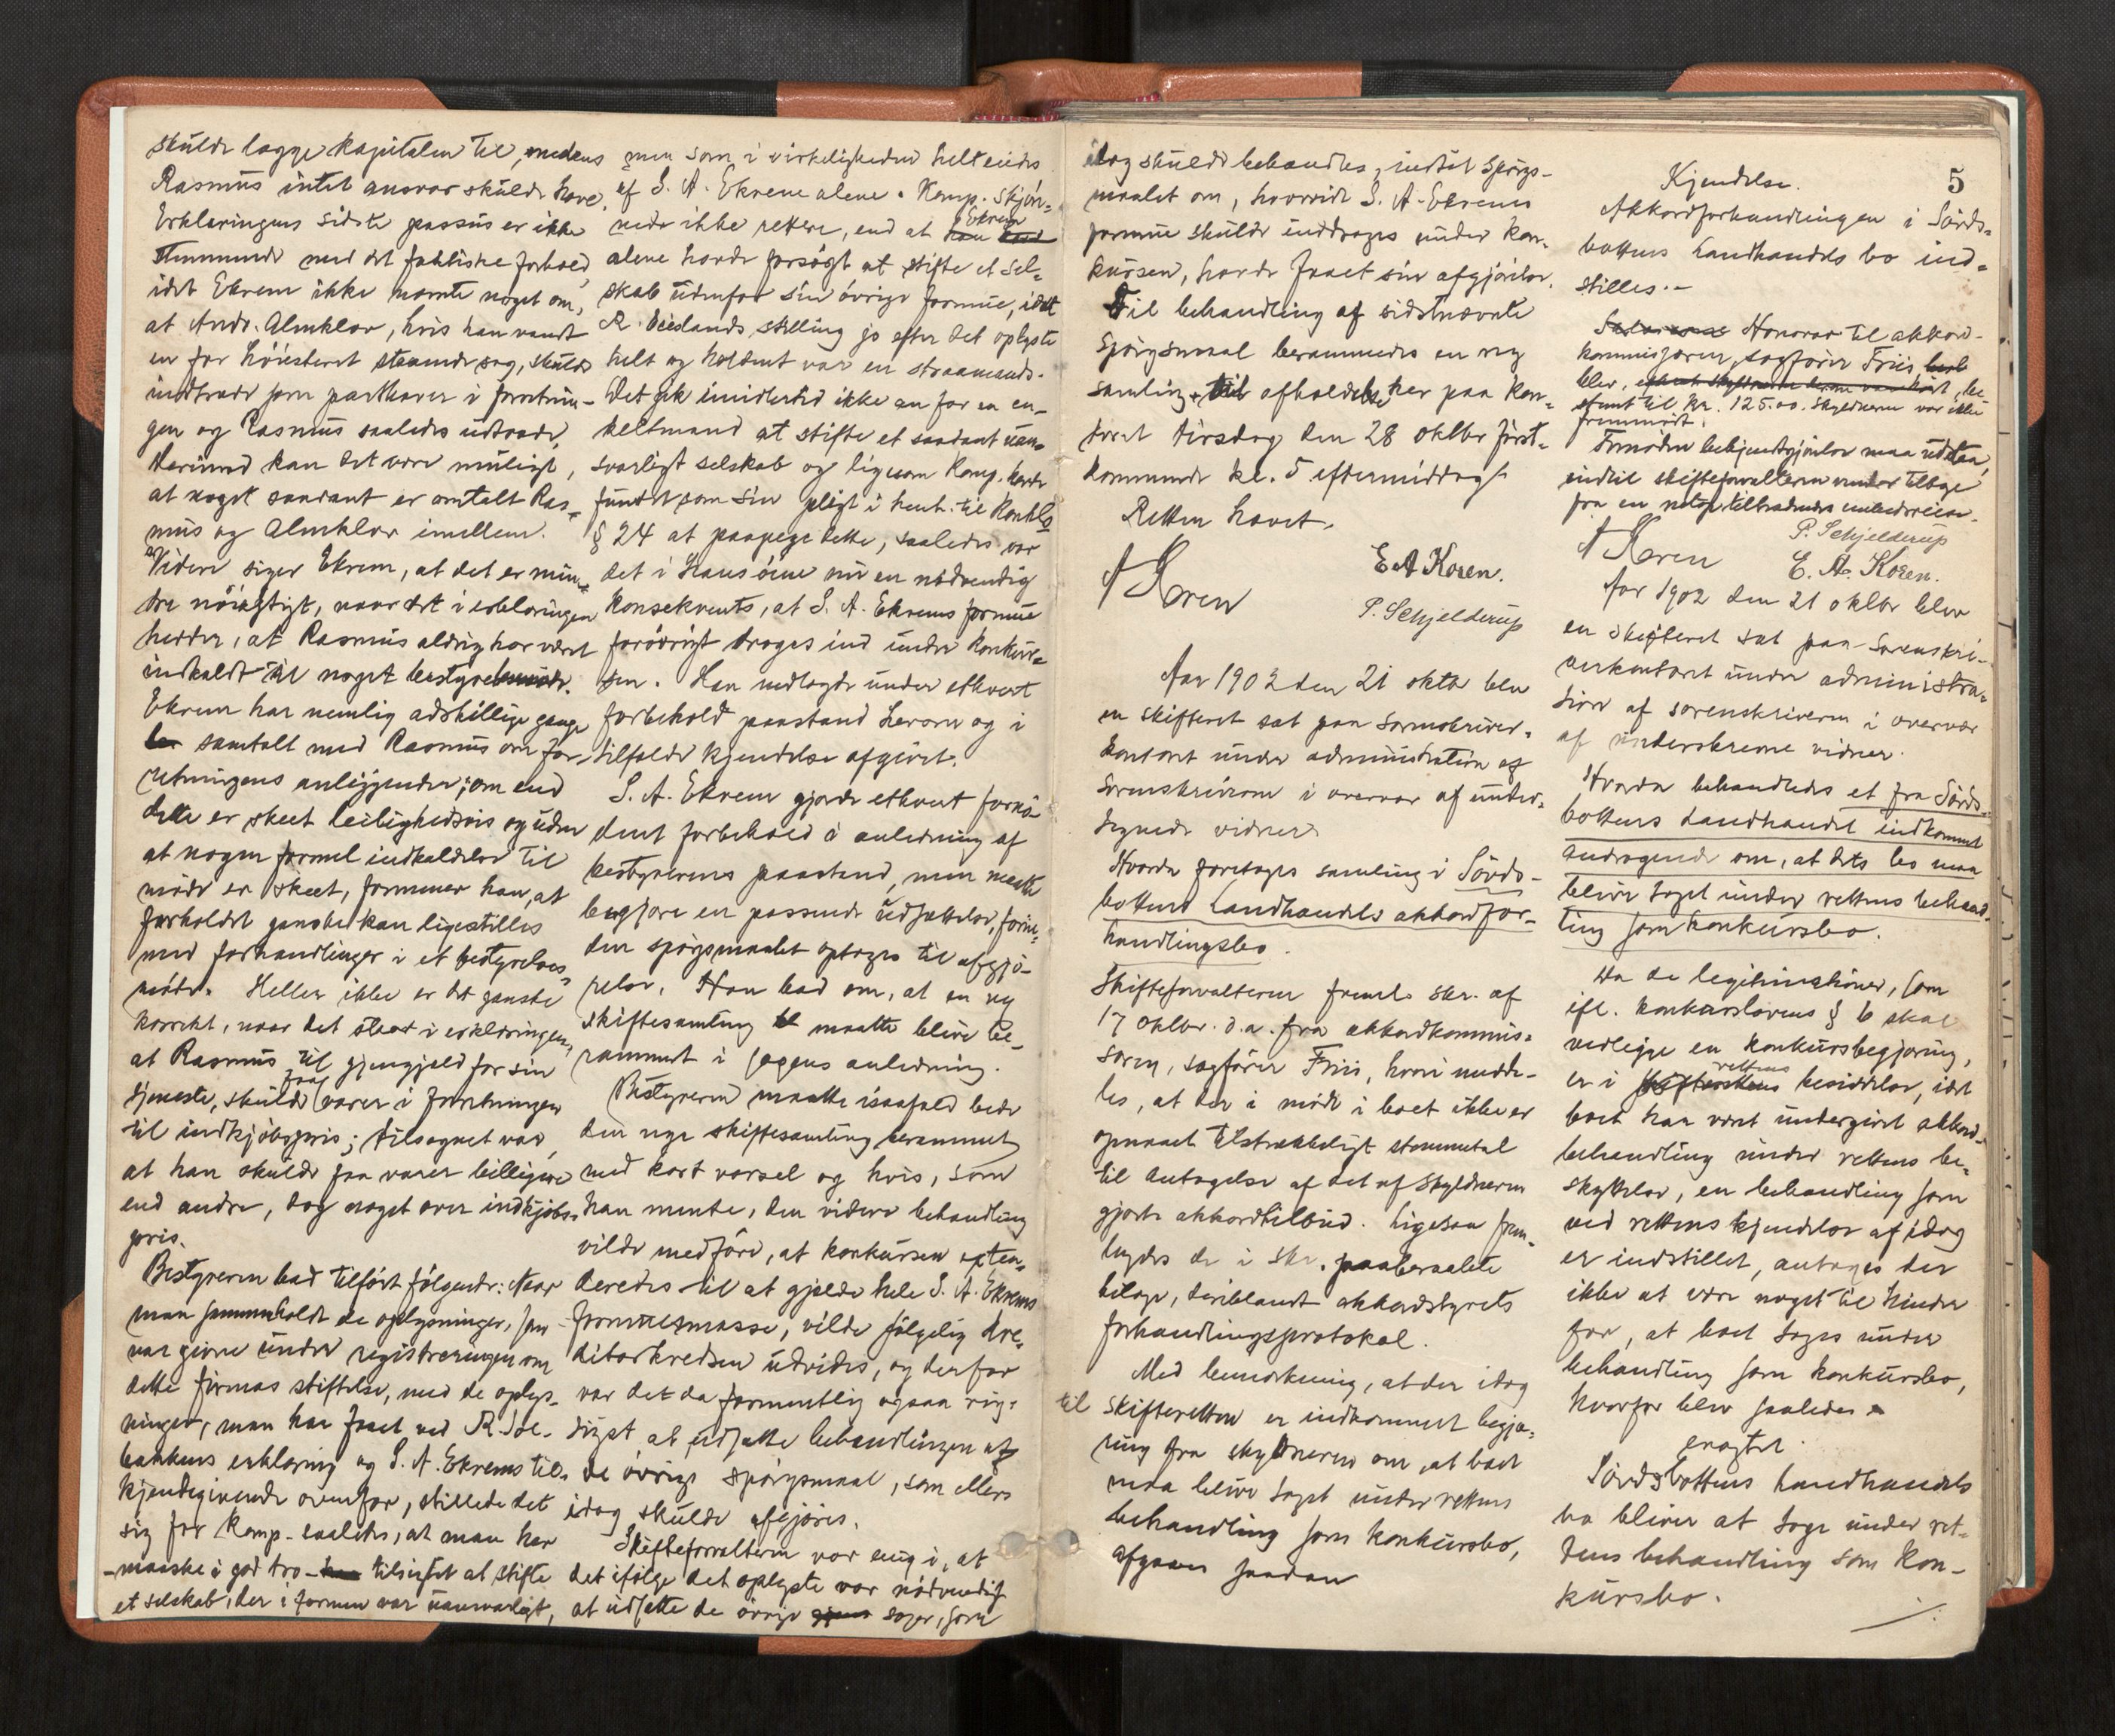 skulde lægge kapitalen til, medens
Rasmus intet ansvar skulde have.
Erklæringens sidste passus er ikke
stemmende med det faktiske forhold,
idet Ekrem ikke nævnte noget om,
at Andr. Almklov, hvis han vandt
en for höiesteret svævende sag, skulde
indtræde som parthaver i forretnin-
gen og Rasmus saaledes udtræde.
Derimod kan det være muligt,
at noget saadant er omtalt Ras-
mus og Almklov imellem.
Videre siger Ekrem, at det er min-
dre nöiagtigt, naar det i erklæringen
heder, at Rasmus aldrig har været
indkaldt til noget bestyrelsesmöde.
Ekrem har nemlig adskillige gange
samtalt med Rasmus om for-
retningens anliggender; om end
dette er skeet leilighedsvis og uden
at nogen formel indkaldelse til
möde er skeet, formener han, at
forholdet ganske kan ligestilles
med forhandlinger i et bestyrelses-
möde. Heller ikke er det ganske
korrekt, naar det staar i erklæringen,
at Rasmus til gjengjeld for sin
tjeneste, skulde faa varer i forretningen
til indkjöbspris; tilsagnet var,
at han skulde faa varer billigere
end andre, dog noget over indkjöbs-
pris.
Bestyreren bad tilfört fölgende: Naar
man sammenholdt de oplysninger, som
var givne under registreringen om
dette firmas stiftelse, med de oplys-
ninger, man har faaet ved R. Sol-
bakkens erklæring og S. A. Ekrems til-
kjendegivende ovenfor, stillede det
sig for Komp. saaledes, at man har
- maaske i god tro - tilsigtet at stifte
et selskab, der i formen var uansvarligt,
men som i virkeligheden helt eiedes
af S. A. Ekrem alene. Komp. skjön-
nede ikke rettere, end at Ekrem
alene havde forsögt at stifte et sel-
skab udenfor sin övrige formue, idet
R. Veislands stilling jo efter det oplyste
helt og holdent var en straamands.
Det gik imidlertid ikke an for en en-
keltmand at stifte et saadant uan-
svarligt selskab og ligesom Komp. havde
fundet som sin pligt i henh. til Konkl.
§ 24 at paapege dette, saaledes var
det i Hans öine nu en nödvendig
konsekvents, at S. A. Ekrems formue
forövrigt droges ind under konkur-
sen. Han nedlagde under ethvert
forbehold paastand herom og i
tilfælde kjendelse afgivet.
S. A. Ekrem gjorde ethvert fornö-
dent forbehold i anledning af
bestyrerens paastand, men maatte
begjære en passende udsættelse, forin-
den spörgsmaalet optages til afgjö-
relse. Han bad om, at en ny
skiftesamling maatte blive be-
rammet i sagens anledning.
Bestyreren maatte isaafald bede
den nye skiftesamling berammet
med kort varsel og hvis, som
han mente, den videre behandling
vilde medföre, at konkursen exten-
deredes til at gjælde hele S. A. Ekrems
formuesmasse, vilde fölgelig kre-
ditorkredsen udvides, og derfor
var det da formentlig ogsaa rig-
tigst at udsætte behandlingen af
de övrige spörgsmaal, som ellers
idag skulde afgjöres.
Skifteforvalteren var enig i, at
det ifölge det oplyste var nödvendigt
at udsætte de övrige sager, som
idag skulde behandles, indtil spörgs-
maalet om, hvorvidt S. A. Ekrems
formue skulde inddrages under kon-
kursen, havde faaet sin afgjörelse.
Til behandling af sidstnævnte
spörgsmaal berammedes en ny
samling til afholdelse her paa kon-
toret tirsdag den 28 oktbr först-
kommende kl. 5 eftermiddag.
Retten hævet.
A Koren
E A Koren.
P. Schjelderup
Aar 1902 den 21 oktbr blev
en skifteret sat paa sorenskriver-
kontoret under administration af
sorenskriveren i overvær af under-
tegnede vidner
Hvorda foretages samling i Sörds-
bottens Landhandels akkordfor-
handlingsbo.
Skifteforvalteren freml. skr. af
17 oktbr. d.a. fra akkordkommis-
særen, sagförer Friis, hvori medde-
les, at der i möde i boet ikke er
opnaaet tilstrækkeligt stemmetal
til antagelse af det af skyldneren
gjorte akkordtilbud. Ligesaa frem-
lagdes de i skr. paaberaabte
bilage, deriblandt akkordstyrets
forhandlingsprotokol.
Med bemærkning, at der idag
til skifteretten er indkommet begjæ-
ring fra skyldneren om, at boet
maa blive taget under rettens
behandling som konkursbo,
afgaves saadan
5
Kjendelse.
Akkordforhandlingen i Sörds-
bottens Landhandels bo ind-
stilles.-
Honorar til akkord-
kommissæren, sagförer Friis
blev, be-
stemt til kr. 125.00. Skyldneren var ikke
fremmödt.
Fornöden bekjendtgjörelse maa udstaa,
indtil skifteforvalteren vender tilbage
fra en netop tiltrædende embedsreise.
A Koren
P. Schjelderup
E. A. Koren.
Aar 1902 den 21 oktbr blev
en skifteret sat paa sorenskri-
verkontoret under administra-
tion af sorenskriveren i overvær
af underskrevne vidner.
Hvorda behandledes et fra Sörds-
bottens Landhandel indkommet
andragende om, at dets bo maa
blive taget under rettens behand-
ling som konkursbo.
Da de legitimationer, som
ifl. konkurslovens § 6 skal
vedlægge en konkursbegjæring,
er i rettens besiddelse, idet
boet har været undergivet akkord-
behandling under rettens be-
skyttelse, en behandling som
ved rettens kjendelse af idag
er indstillet, antages der
ikke at være noget til hinder
for, at boet tages under
behandling som konkursbo,
hvorfor blev saaledes
eragtet.
Sördsbottens handhandels
bo bliver at tage under ret-
tens behandling som kon-
kursbo.